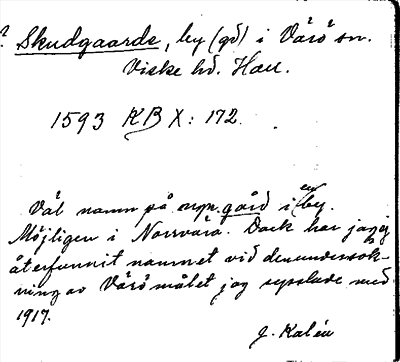 ? Skudgaarde, by (gd) i Värö sn.
Viske hd. Hall.
1593 KB X: 172.
Väl namn på urspr. gård i en by.
Möjligen i Norrvära. Dock har jag ej
återfunnit namnet vid den undersök-
ning av Värömålet jag sysslade med
1917.
J. Kalén